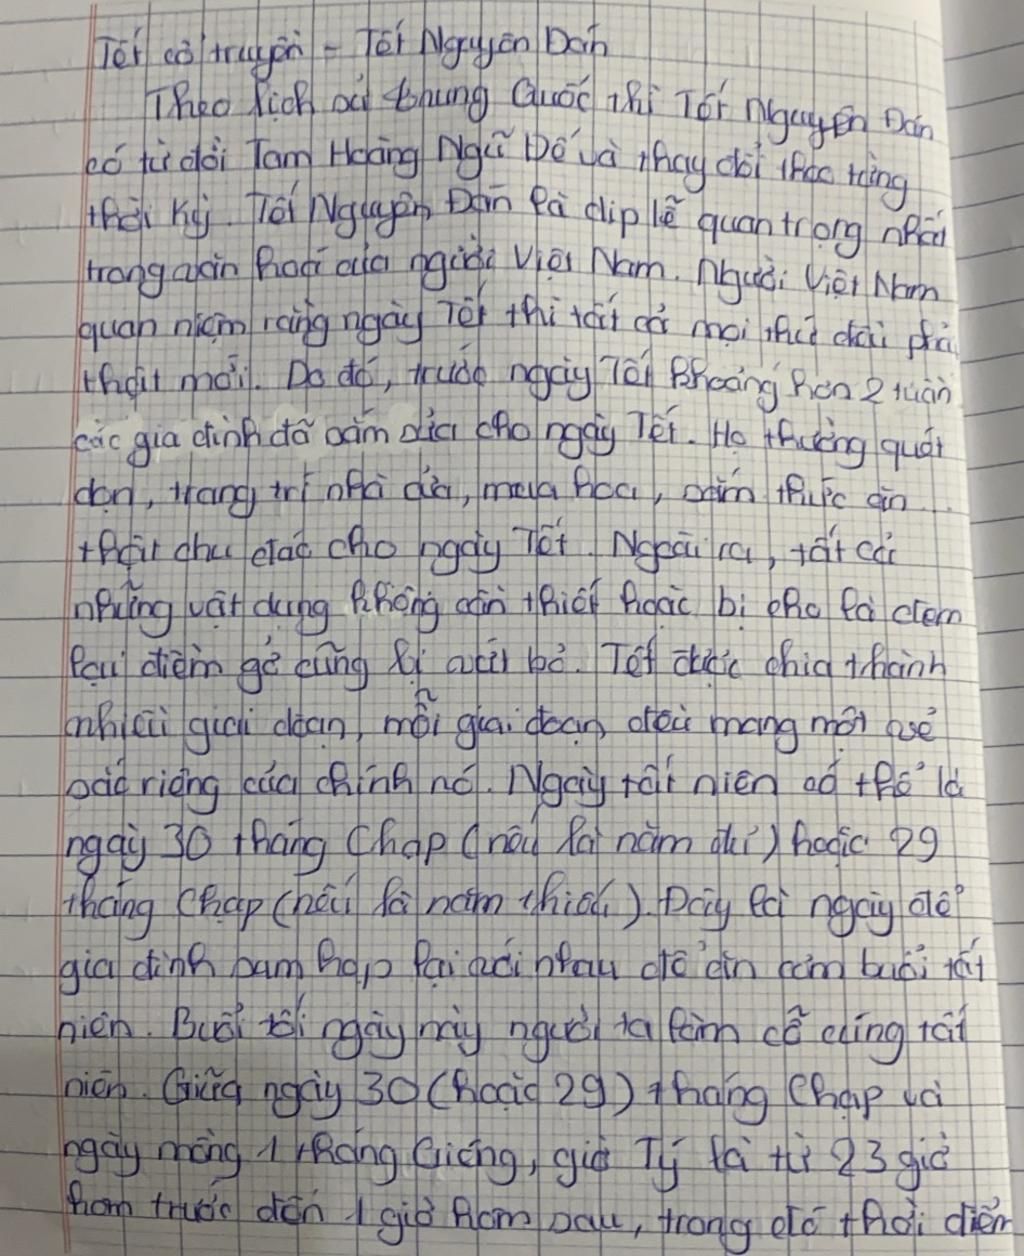 Tết cổ truyền - Tết Nguyên Đán
Theo lịch sử Trung Quốc thì Tết Nguyên Đán
có từ đời Tam Hoàng Ngũ Đế và thay đổi theo từng
thời kỳ. Tết Nguyên Đán là dịp lễ quan trọng nhất
trong văn hoá của người Việt Nam. Người Việt Nam
quan niệm rằng ngày Tết thì tất cả mọi thứ đều phải
thật mới. Do đó, trước ngày Tết khoảng hơn 2 tuần
các gia đình đã sắm sửa cho ngày Tết. Họ thường quét
dọn, trang trí nhà cửa, mua hoa, sắm thức ăn
thật chu đáo cho ngày Tết. Ngoài ra, tất cả
những vật dụng không cần thiết hoặc bị cho là đem
lại điềm gở cũng bị vứt bỏ. Tết được chia thành
nhiều giai đoạn, mỗi giai đoạn đều mang một vẻ
sắc riêng của chính nó. Ngày tất niên có thể là
ngày 30 tháng Chạp (nếu là năm đủ) hoặc 29
tháng Chạp (nếu là năm thiếu). Đây là ngày để
gia đình sum họp lại với nhau để ăn cơm buổi tất
niên. Buổi tối ngày này người ta làm cỗ cúng tất
niên. Giữa ngày 30 (hoặc 29) tháng Chạp và
ngày mồng 1 tháng Giêng, giờ Tý là từ 23 giờ
hôm trước đến 1 giờ hôm sau, trong đó thời điểm